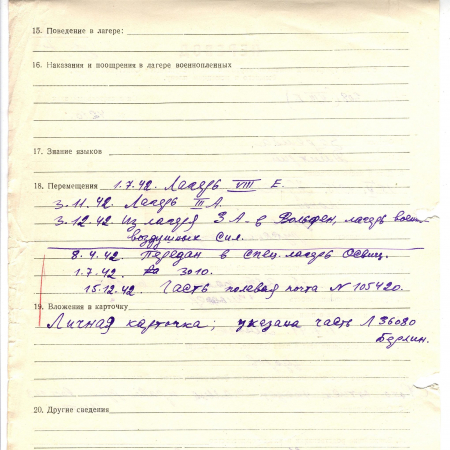 15. Поведение в лагере:
16. Наказания и поощрения в лагере военнопленных
17. Знание языков
18. Перемещения 1.7.42. Лагерь VIII E.
3.11.42. Лагерь III A.
3.12.42 Из лагеря 3 A. в Вольфен, лагерь военно-
воздушных сил.
8.4.42. Передан в спец. лагерь Освенц.
1.7.42. 3010.
15.12.42. Часть полевая почта N 105420.
19. Вложения в карточку
Личная карточка; указана часть Л 36080
Берлин.
20. Другие сведения